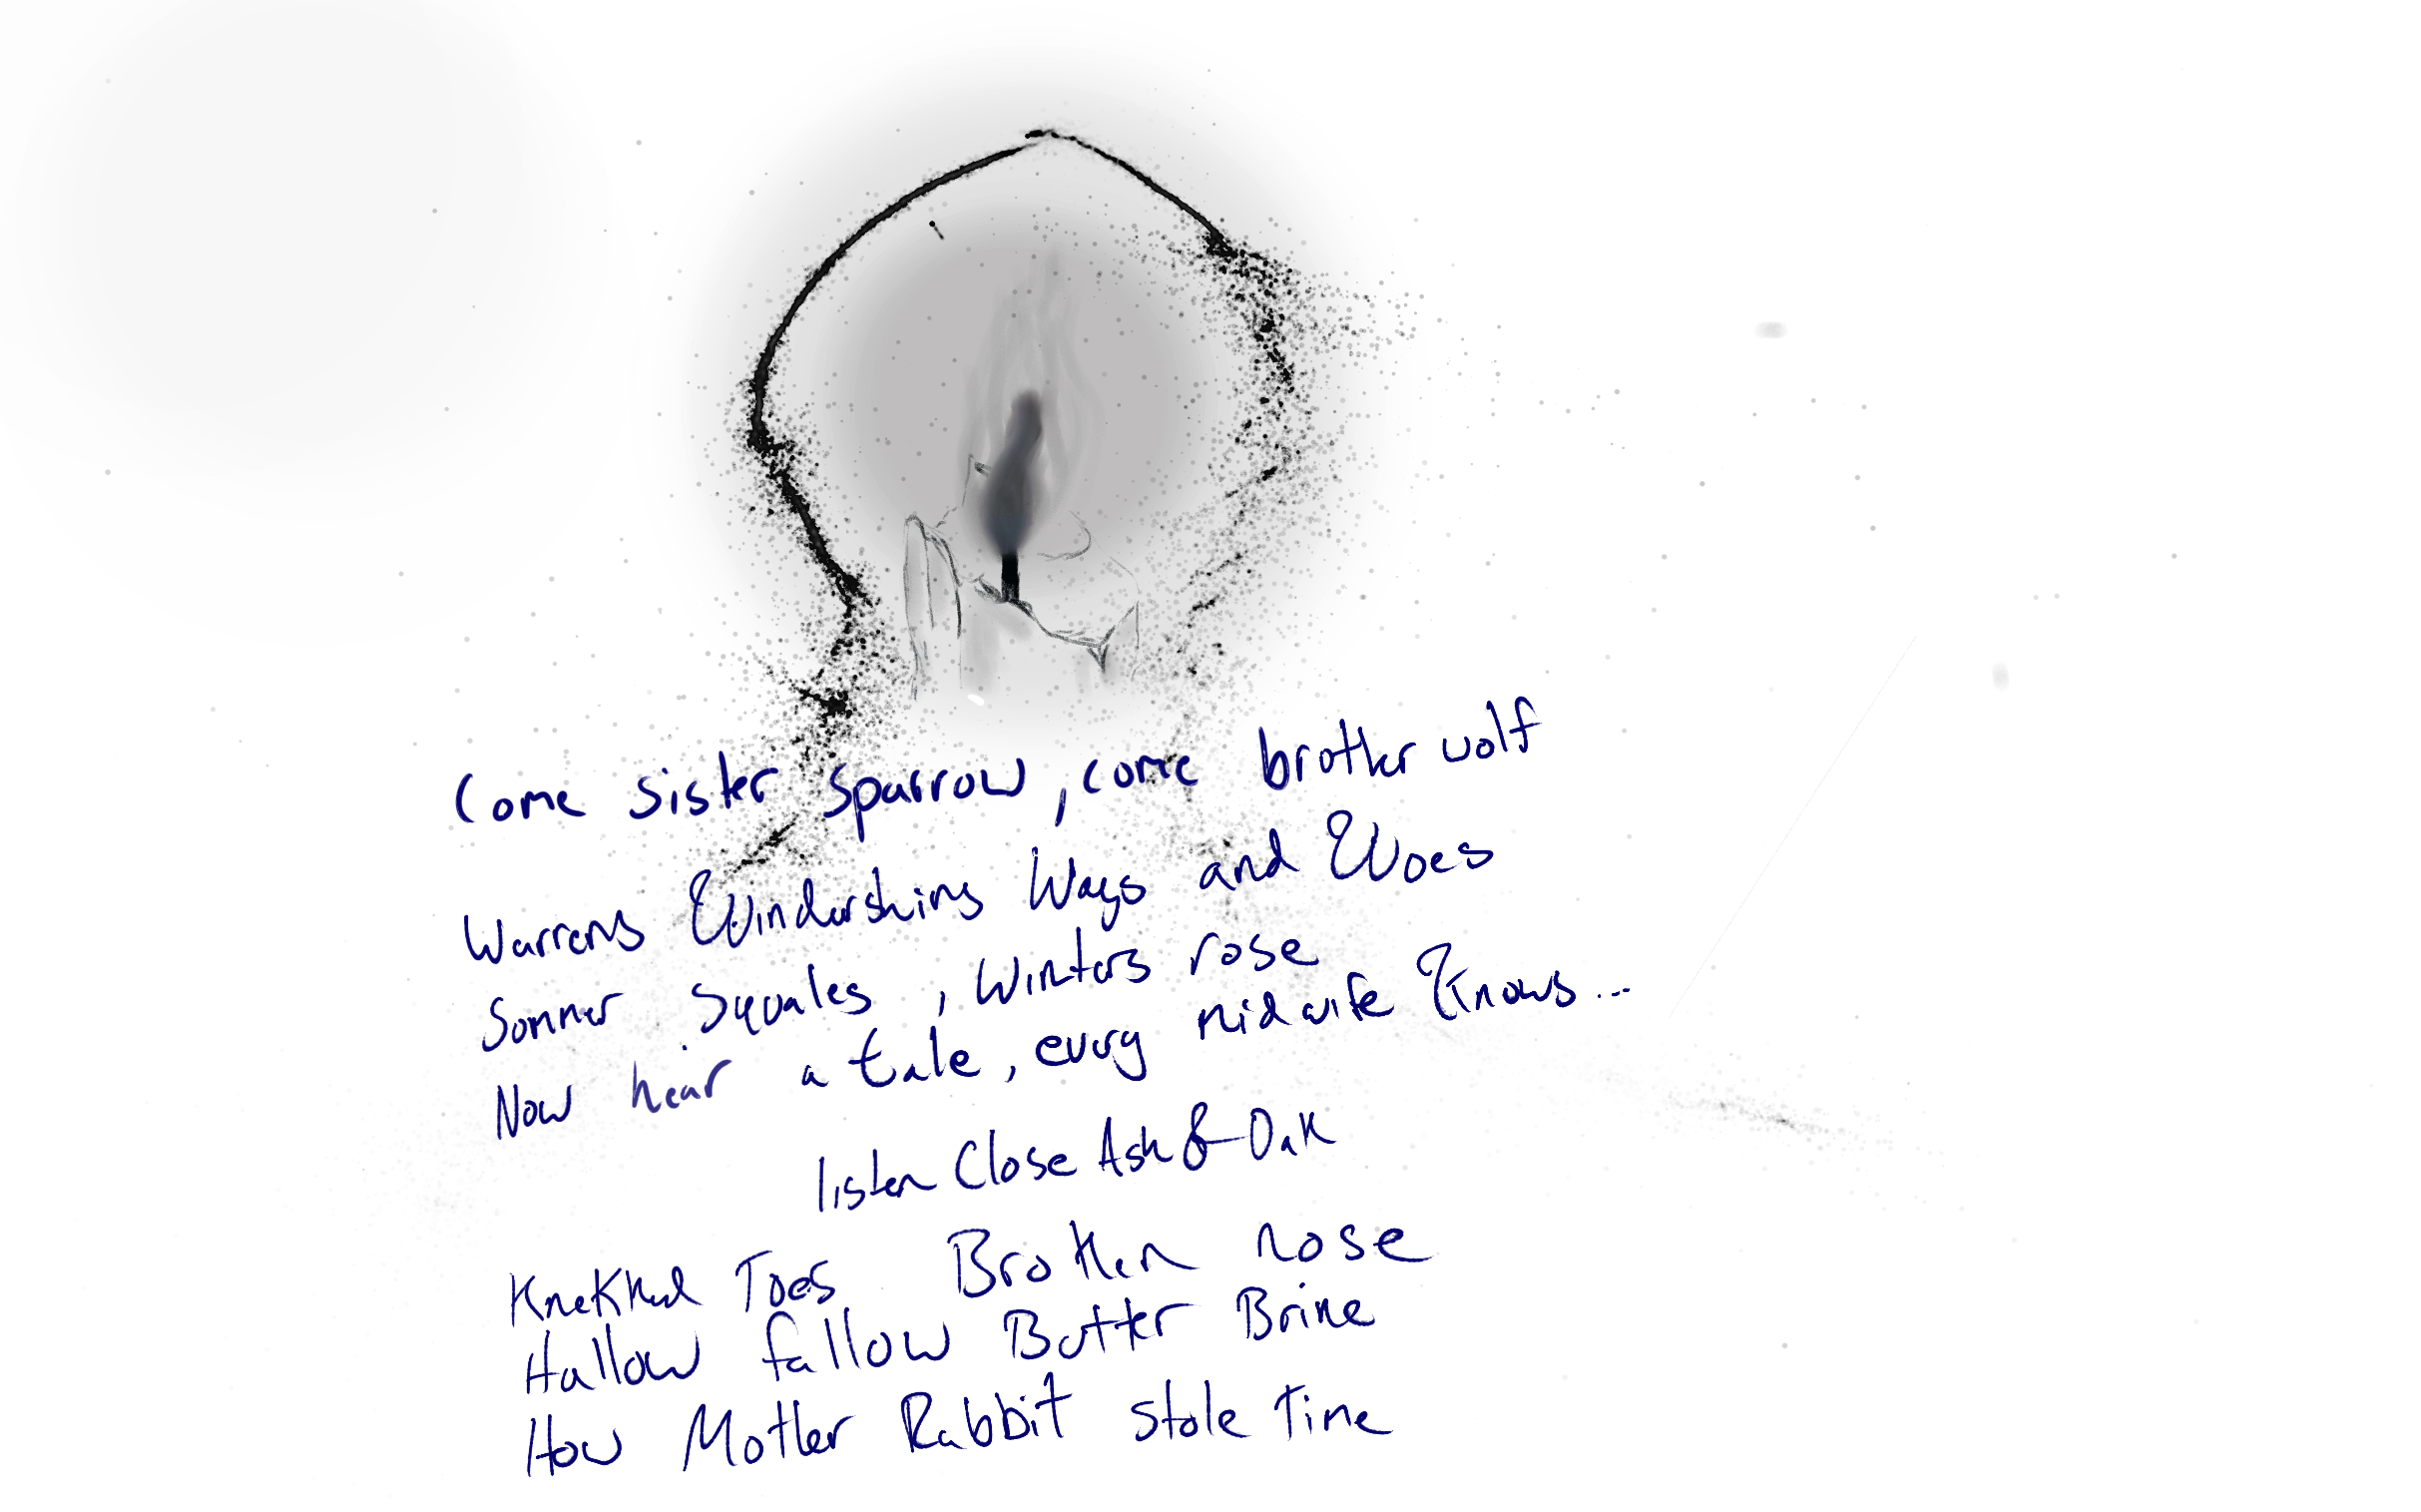 Come sister sparrow, come brother wolf
Warrens Windershins Ways and Woes
Sommer Squales, Winters rose
Now hear a tale, every midwife Knows...
listen Close Ash & Oak
Toes Brothen nose
Hallow fallow Butter Brine
How Mother Rabbit stole Time